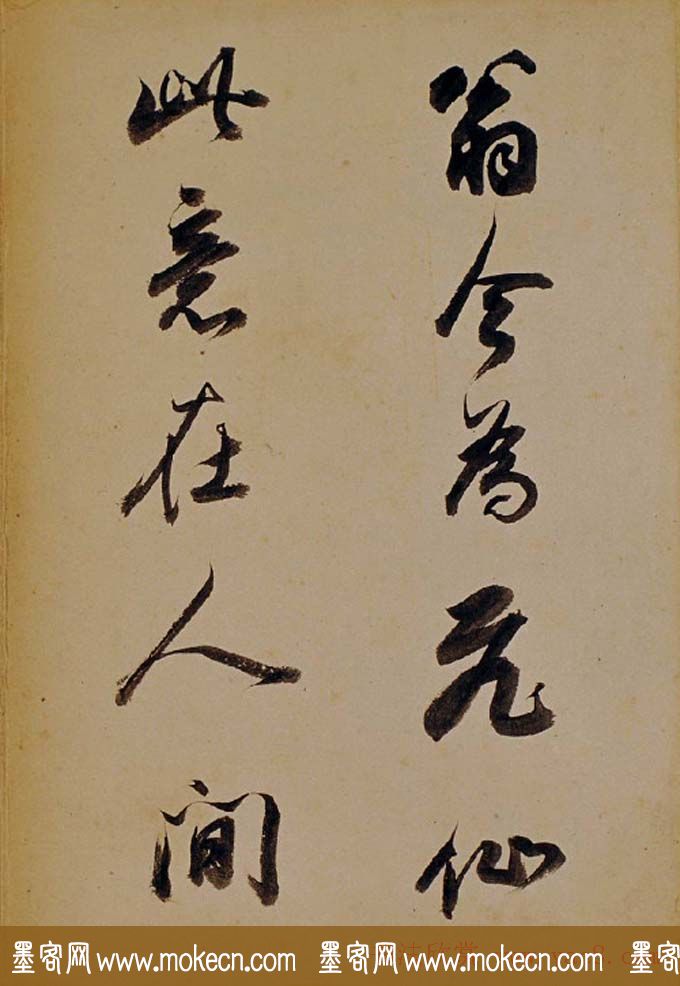 翁今為飛仙
此意在人間
墨客网 www.mokecn.com 墨客网 www.mokecn.com 墨客网